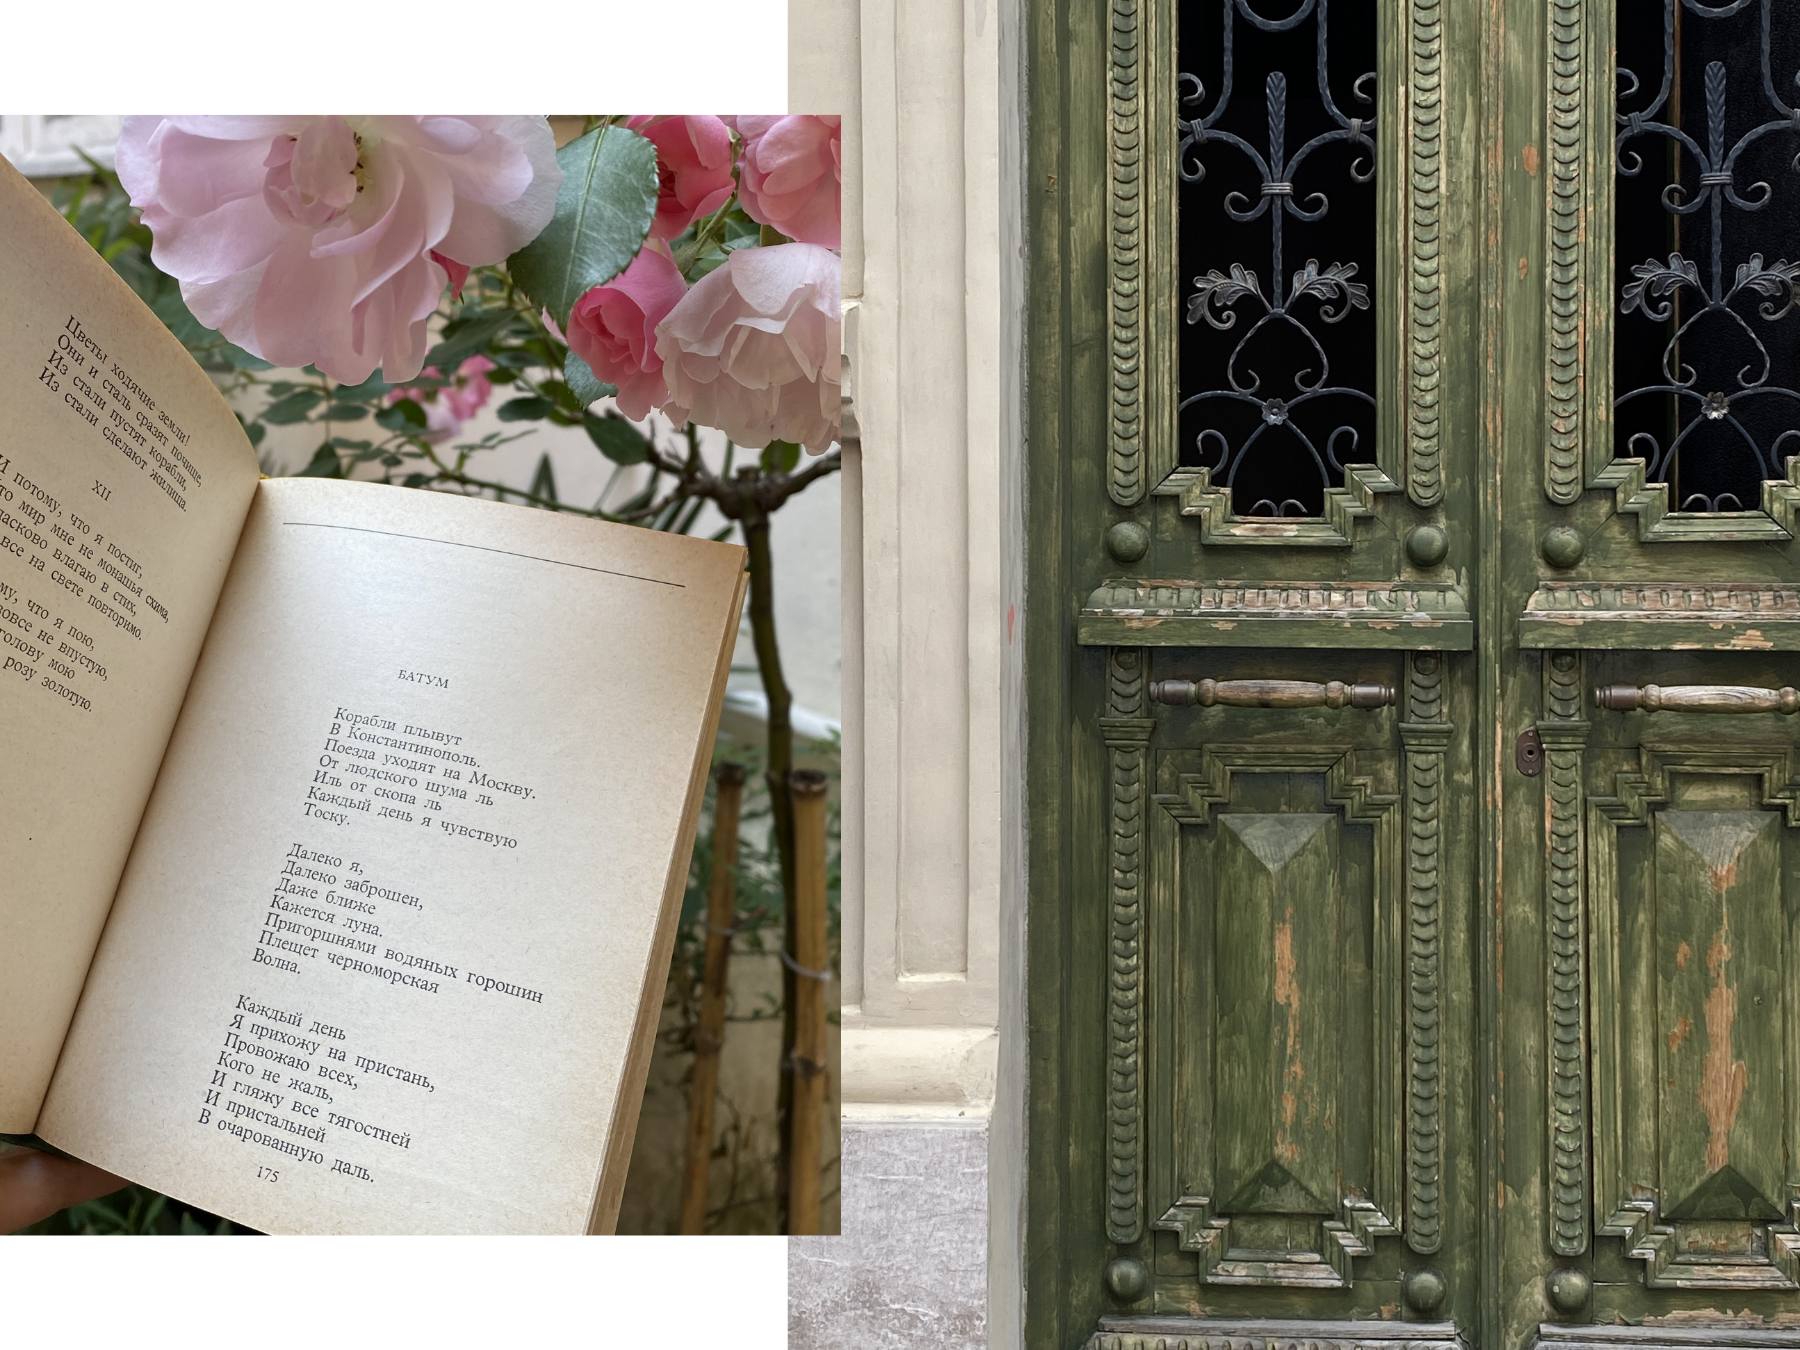 Цветы ходячие земли!
Они и сталь сразят почище,
Из стали пустят корабли,
Из стали сделают жилища.
XII
И потому, что я постиг,
что мир мне не монашья схима,
ласково влагаю в стих,
все на свете повторимо.
что я пою,
вовсе не впустую,
голову мою
розу золотую.
БАТУМ
Корабли плывут
В Константинополь.
Поезда уходят на Москву.
От людского шума ль
Иль от скопа ль
Каждый день я чувствую
Тоску.
Далеко я,
Далеко заброшен,
Даже ближе
Кажется луна.
Пригоршнями водяных горошин
Плещет черноморская
Волна.
Каждый день
Я прихожу на пристань,
Провожаю всех,
Кого не жаль,
И гляжу все тягостней
И пристальней
В очарованную даль.
175